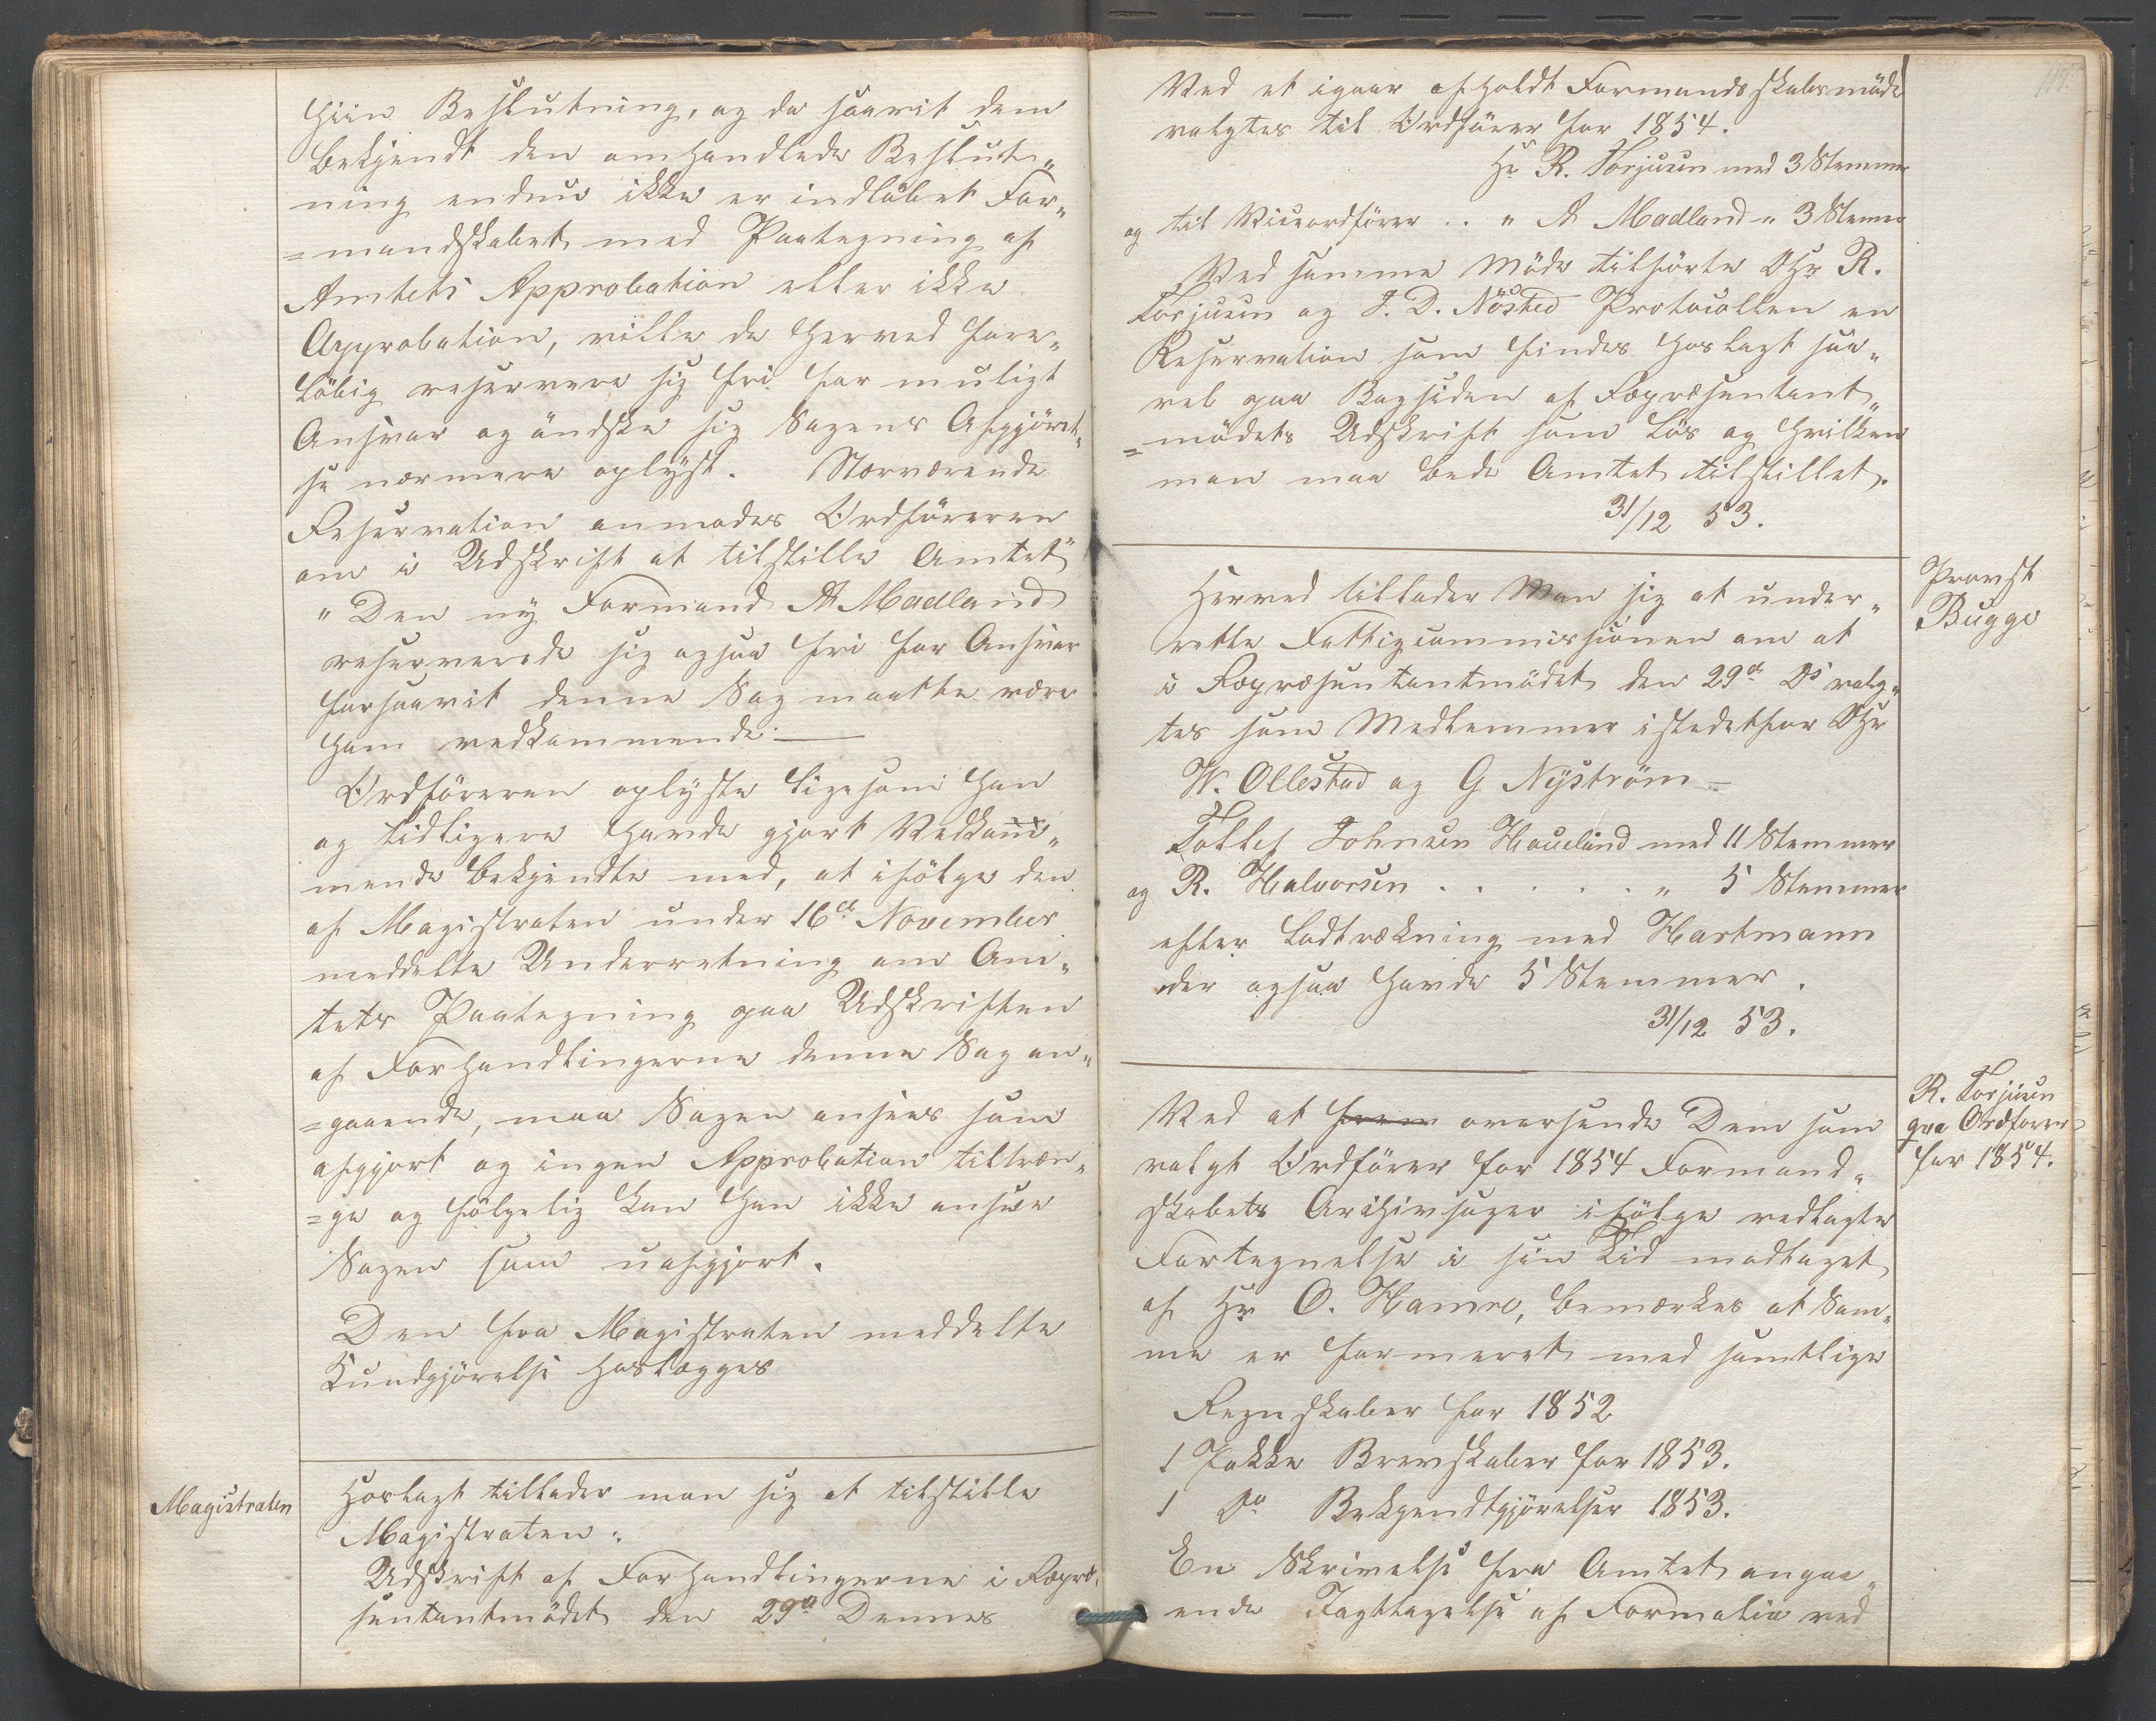 hiin Beslutning, og da saavit dem
bekjendt den omhandlede Beslut„
ning endnu ikke er indløbet For„
=mandskabet med Paategning af
Amtets Approbation eller ikke
Approbation, ville de herved fore„
löbig reservere sig fri for muligt
Ansvar og öndske sig Sagens Afgjörel„
se nærmere oplyst. Nærværende
Reservation anmodes Ordföreren
om i Udskrift at tilstille Amtet"
" Den ny Formand A Madland
reserverede sig ogsaa fri for Ansvar
forsaavit denne Sag maatte være
ham vedkommende —
Ordföreren oplyste ligesom han
og tidligere havde gjort Vedkom„
mende bekjendte med, at ifölge den
af Magistraten under 16de November
meddelte Underretning om Am„
tets Paategning paa Udskriften
af Forhandlingerne denne Sag an„
=gaaende, maa Sagen ansees som
afgjort og ingen Approbation tiltræn„
=ge og fölgelig kan han ikke ansee
Sagen som uafgjort.
Den fra Magistraten meddelte
Kundgjörelse hoslægges
Magistraten
Hoslagt tillader man sig at tilstille
Magistraten:
Udskrift af Forhandlingerne i Repræ„
sentantmödet den 29de Dennes
Ved et igaar afholdt Formandsskabsmöde
valgtes til Ordförer for 1854.
Hr R. Torjusen med 3 Stemmer
og til Viceordförer .. " A Madland " 3 Stemer
Ved samme Möde tilförte DHr R.
Torjusen og J. D. Nösted Protocollen en
Reservation som findes hoslagt saa„
vel paa Bagsiden af Repræsentant„
=mödets Udskrift som lös og hvilken
man maa bede Amtet tilstillet.
31/12 53.
Provst
Bugge
Herved tillader Man sig at under„
rette Fattigcommissionen om at
i Repræsentantmödet den 29de Ds valg„
tes som Medlemmer istedetfor DHr
W. Ollestad og G Nyström —
Tollef Johnsen Haueland med 11 Stemmer
og R. Halvorsen . . . . . " 5 Stemmer
efter Lodtrækning med Hartmann
der ogsaa havde 5 Stemmer.
31/12 53.
R. Torjusen
qva Ordförer
for 1854.
Ved at frem oversende Dem som
valgt Ordförer for 1854 Formand„
skabets Archivsager ifölge vedlagte
Fortegnelse i sin Tid modtaget
af Hr O. Hamre, bemærkes at Sam„
me er formeret med samtlige
Regnskaber for 1852
1 Pakke Brevskaber for 1853.
1 Do Bekjendtgjörelser 1853.
En Skrivelse fra Amtet angaa„
ende Iagttagelse af Formalia ved